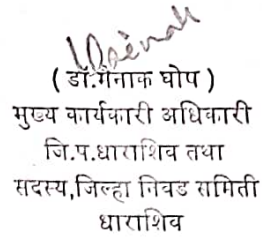 ( डॉ.मैनाक घोष )
मुख्य कार्यकारी अधिकारी
जि.प.धाराशिव तथा
सदस्य,जिल्हा निवड समिती
धाराशिव